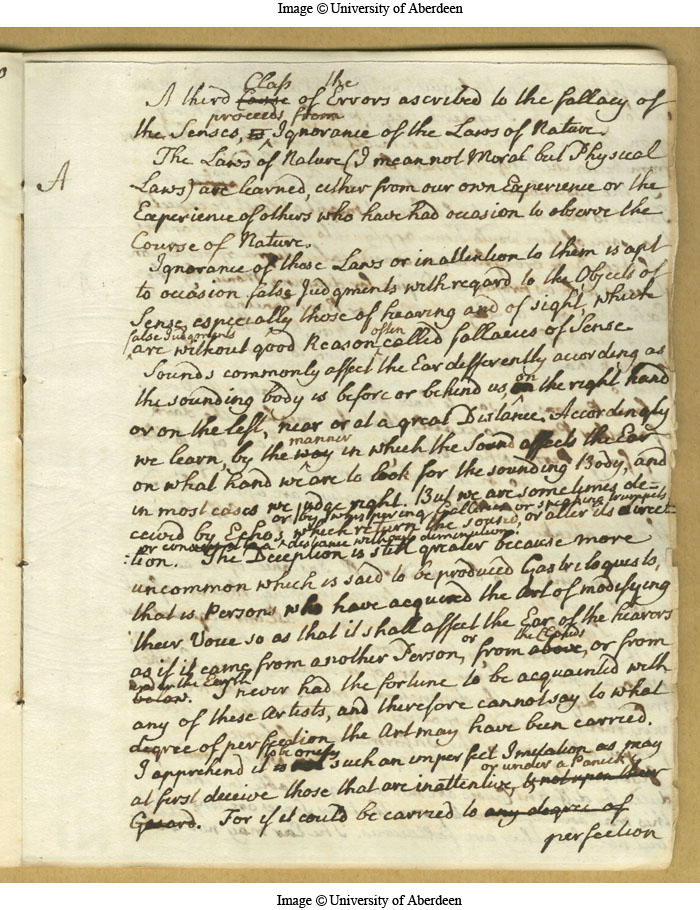 Image © University of Aberdeen
Class the
A third Cause of Errors ascribed to the fallacy of
proceeds from
the Senses, is Ignorance of the Laws of Nature.
The Laws of Nature (I mean not Moral but Physical
A
Laws) are learned, either from our own Experience or the
Experience of others who have had occasion to observe the
Course of Nature.
Ignorance of those Laws or inattention to them is apt
to occasion false Judgments with regard to the Objects of
Sense, especially those of hearing and of sight, which
false Judgments often
are without good Reason called fallacies of Sense.
Sounds commonly affect the Ear differently according as
the sounding body is before or behind us, on the right hand
on
or on the left, near or at a great Distance. Accordingly
manner
we learn, by the way in which the Sound affects the Ear
on what hand we are to look for the sounding Body, and
in most cases we judge right. But we are sometimes de=
or by whispering Galleries or speaking trumpets
ceived by Echos, which return the sound, or alter its direct
or convey it to a distance without diminution.
=tion. The Deception is still greater because more
uncommon which is said to be produced Gastriloquists,
that is Persons who have acquired the Art of modifying
their Voice so as that it shall affect the Ear of the hearers
or the Clouds
as if it came from another Person, from above, or from
under the Earth
below. I never had the fortune to be acquainted with
any of these Artists, and therefore cannot say to what
degree of perfection the Art may have been carried.
to be only
I apprehend it is such an imperfect Imitation as may
or under a Panick
at first deceive those that are inattentive, but not upon their
Guard. For if it could be carried to any degree of
perfection
Image © University of Aberdeen